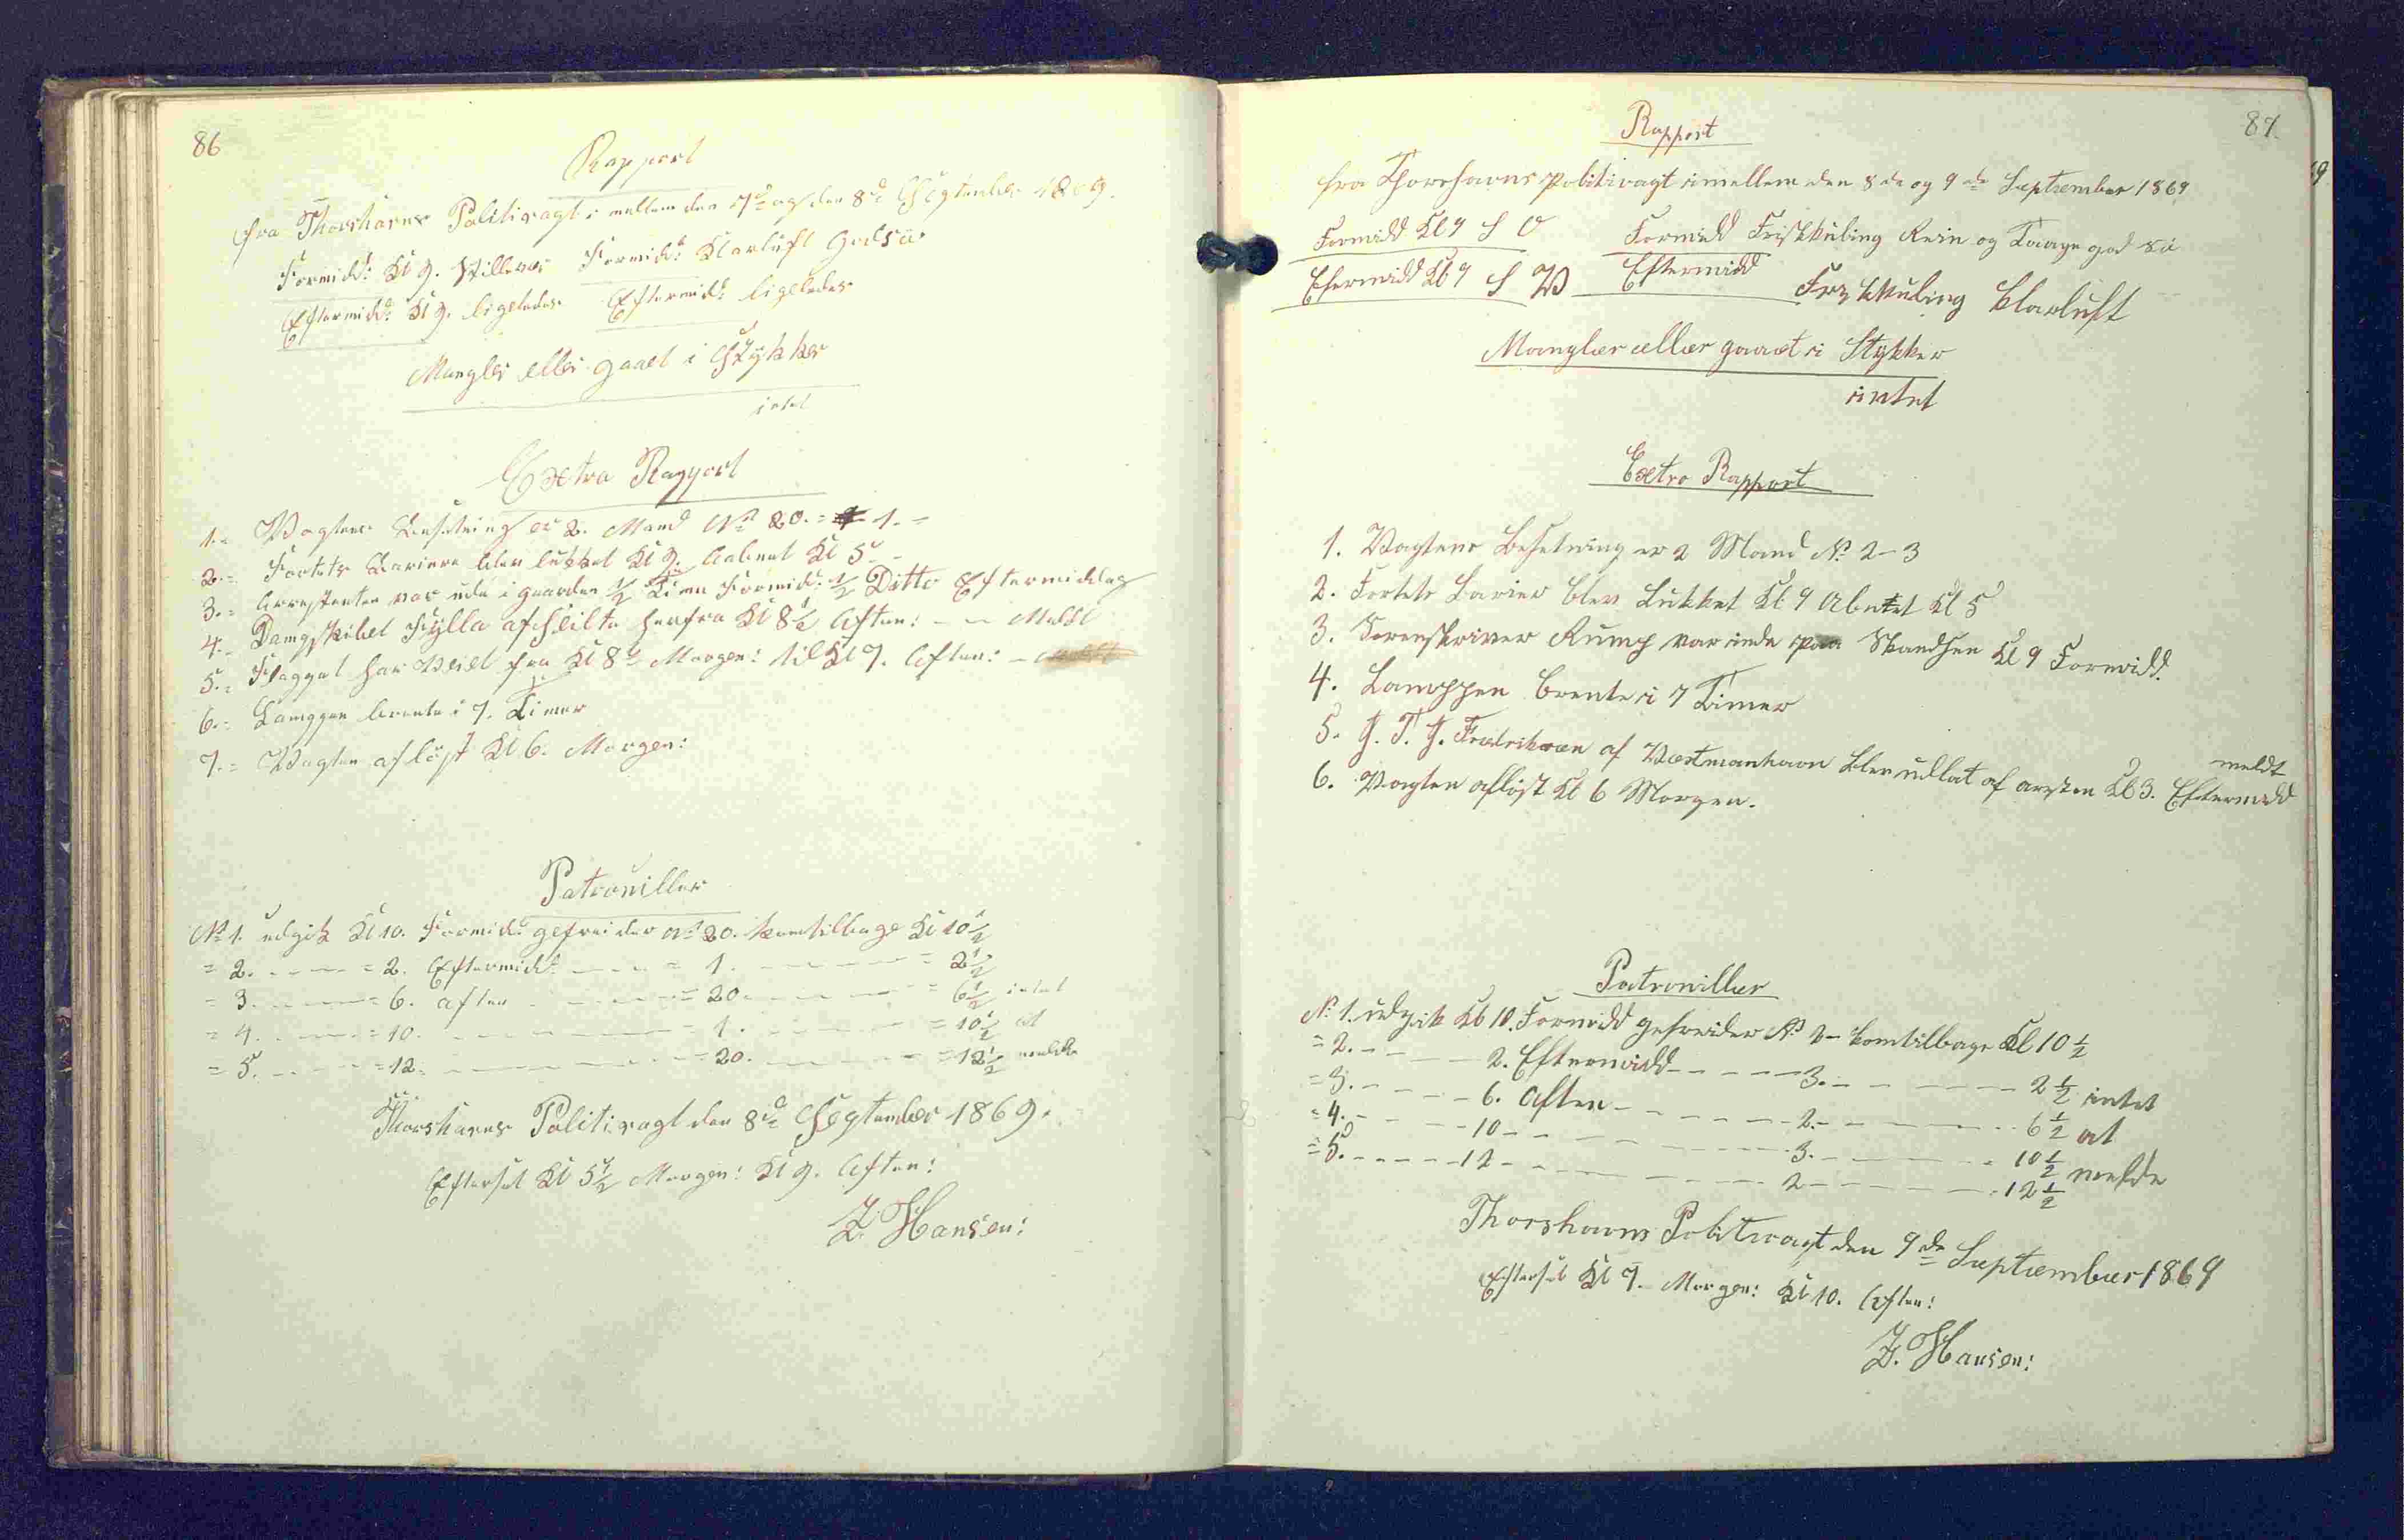 86
Rapport
fra Thorshavns Politivagt i mellem den 7de og den 8de September 1869.
Formidd: Kl 9. Stille veir Formidd: Klarluft god Sü
Eftermidd: Kl 9. ligeledes Eftermidd: ligeledes
Mangler eller gaaet i Stykker
intet
Extra Rapport
1.= Vagtens Besetning er 2. Mand No 20. = 1.-
2.= Fortets Bariere blev lukket Kl 9. Aabnet Kl 5
3.= Arrestanten var ude i gaarden 1/2 Time Formidd: 1/2 Ditto Eftermiddag
4.= Dampskibet Fylla afseilte herfra Kl 8 1/2 Aften: - - Meldt
5.= Flagget har Veiet fra Kl 8 Morgen: til Kl 7. Aften: -
6.= Lamppen brente i 7. Timer
7.= Vagten aflöst Kl 6. Morgen:
Patrouiller
No 1. udgik Kl 10. Formidd: gefreider No 20. kom tilbage Kl 10 1/2
= 2. - - - = 2. Eftermidd - - = 1. - - - = 2 1/2
= 3. - - - = 6. aften - - - = 20. - - - = 6 1/2 intet
= 4. - - - = 10. - - - 1. - - - = 10 1/2 at
= 5. - - - = 12. - - - = 20. - - - = 12 1/2 melde
Thorshavns Politivagt den 8de September 1869.
Efterset Kl 5 1/2 Morgen: Kl 9. Aften:
Z. Hansen:
87
Rapport
fra Thorshavns Politivagt imellem den 8de og 9de September 1869
Formidd Kl 9 S O Formidd Friskkuling Rein og Taage god Sü
Efermidd Kl 9 S W Eftermidd Friskkuling Klarluft
Mangler eller gaaet i Stykker
intet
Extra Rapport
1. Vagtens Besetning er 2 Mand No 2-3
2. Fortets Barier blev Lukket Kl 9 Abnet Kl 5
3. Sorenskriver Rump var inde paa Skandsen Kl 9 Formidd.
4. Lamppen brente i 7 Timer
5. J. T. J. Fredriksen af Vestmanhavn blev udlat af aresten Kl 3. Eftermidd meldt
6. Vagten aflöst Kl 6 Morgen.
Patrouiller
No 1. udgik Kl 10. Formidd gefreider No 2- kom tilbage Kl 10 1/2
= 2. - - - 2. Eftermidd - - - 3. - - - 2 1/2 intet
= 3. - - - 6. Aften - - - 2. - - - 6 1/2 at
= 4. - - - 10 - - - 3. - - - 10 1/2 melde
= 5. - - - 12 - - - 2 - - - 12 1/2
Thorshavns Politivagt den 9de September 1869
Efterset Kl 7. Morgen: Kl 10. Aften:
Z. Hansen: